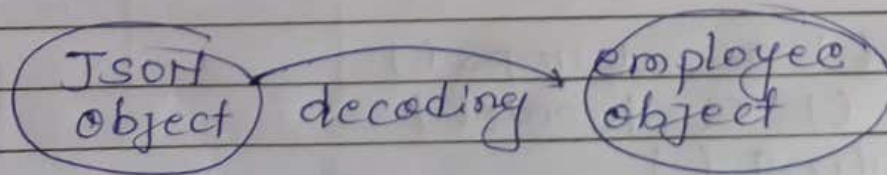 JSON
object
decoding
employee
object